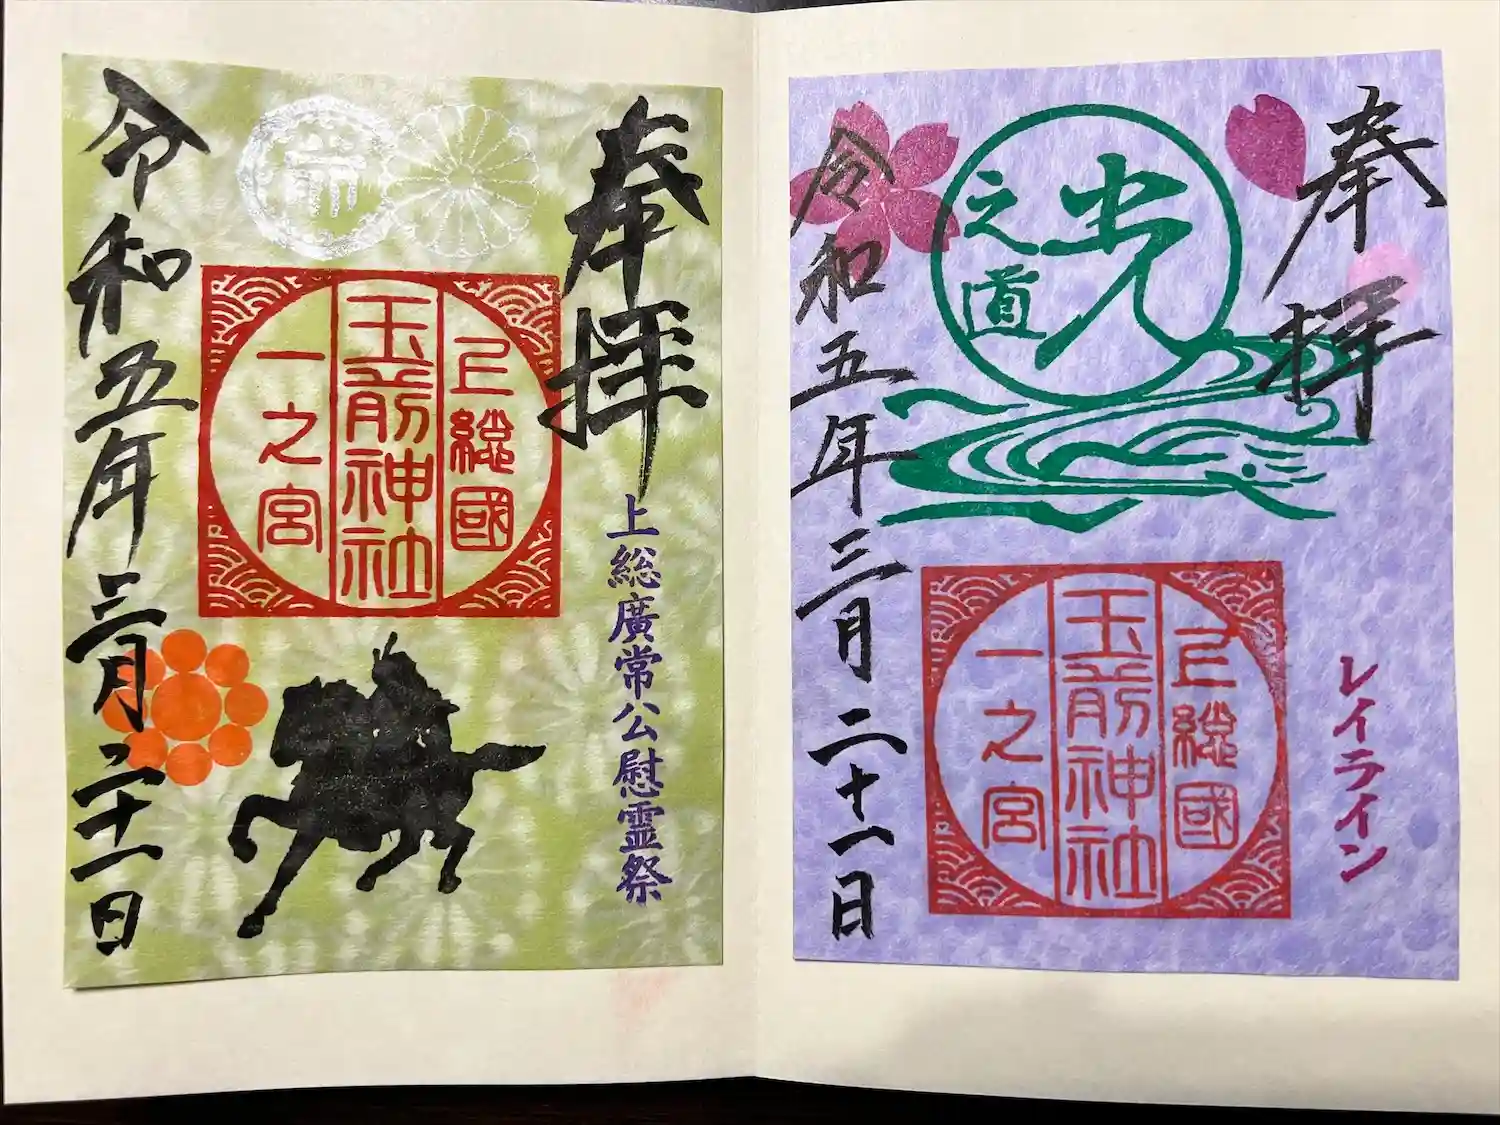 奉拝
レイライン
光
之道
上総國
玉前神社
一之宮
令和五年三月二十一日
奉拝
上総廣常公慰霊祭
上総國
玉前神社
一之宮
令和五年三月二十一日